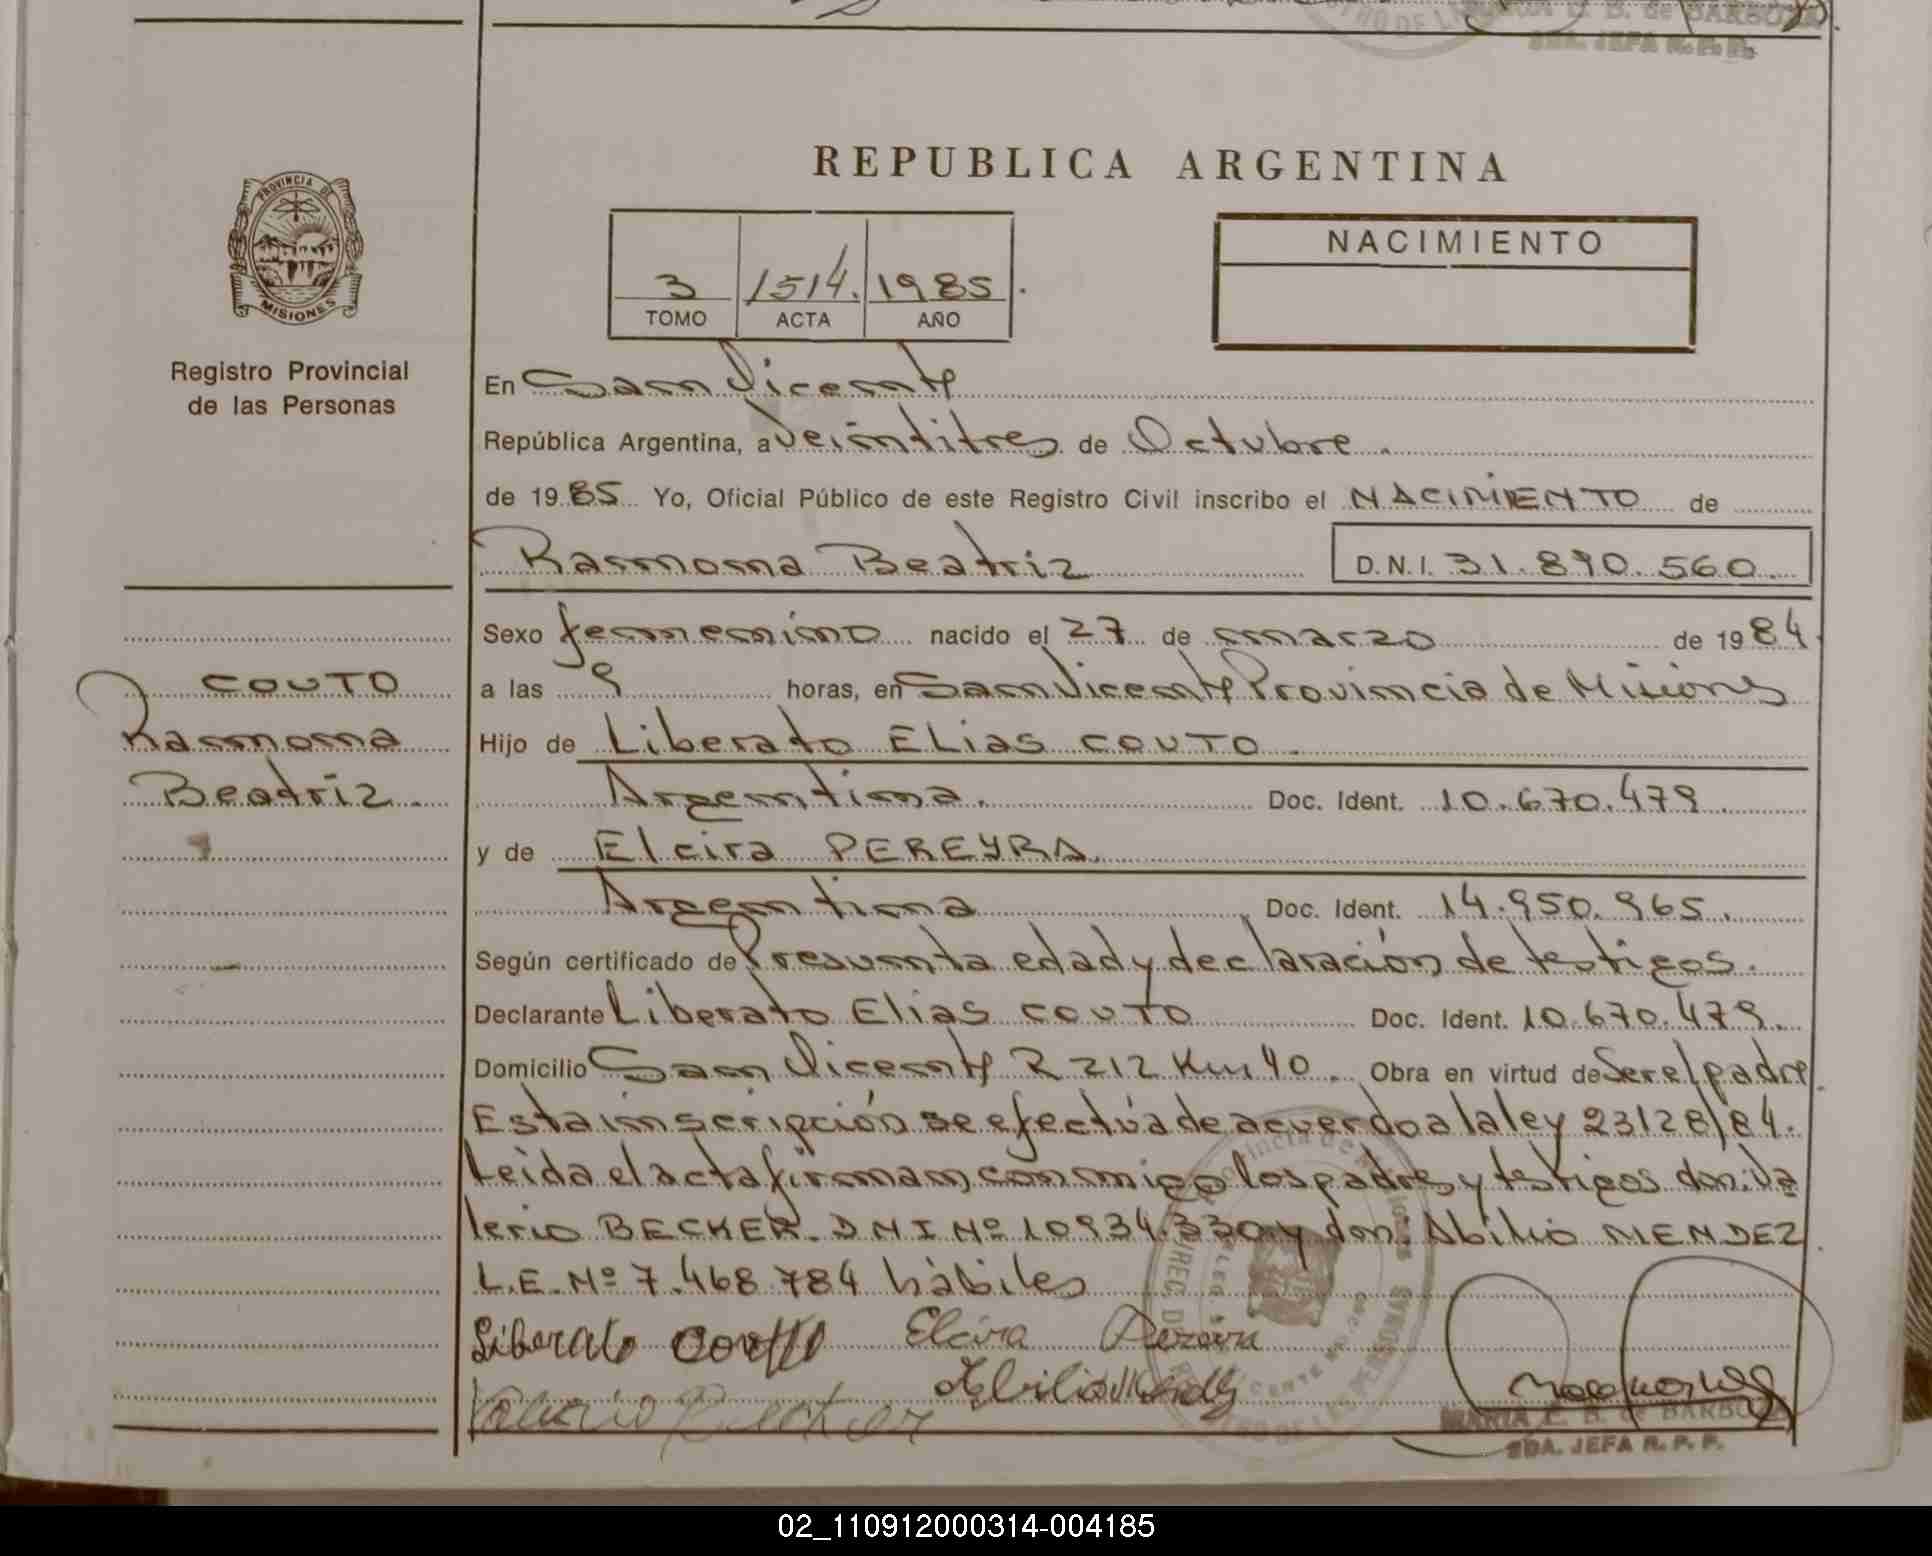 BARBOZA
SDA. JEFA R. P. P.
REPUBLICA ARGENTINA
PROVINCIA DE
MISIONES
Registro Provincial
de las Personas
3 1514. 1985
TOMO ACTA AÑO
NACIMIENTO
En San Vicente
República Argentina, a Veintitres de Octubre.
de 1985 Yo, Oficial Público de este Registro Civil inscribo el NACIMIENTO de
Ramona Beatriz D.N.I. 31.890.560
Sexo femenino nacido el 27 de marzo de 1984
COUTO
Ramona
Beatriz.
a las 9 horas, en San Vicente Provincia de Misiones
Hijo de Liberato ELias COUTO.
Argentina. Doc. Ident. 10.670.479
y de Elcira PEREYRA.
Argentina Doc. Ident. 14.950.965.
Según certificado de Presunta edad y declaración de testigos.
Declarante Liberato Elias COUTO Doc. Ident. 10.670.479.
Domicilio San Vicente R 212 Km 40. Obra en virtud de Ser el padre
Esta inscripción se efectúa de acuerdo a la ley 23128/84.
Leida el acta firman conmigo los padres y testigos don: Va
lerio BECKER. DNI Nº 10934.330 y don: Abilio MENDEZ
L.E. Nº 7.468.784 hàbiles
Liberato Couto Elcira Pereyra
Valerio Becker Abilio Mendez
MARIA C. B. de BARBOZA
SDA. JEFA R. P. P.
02_110912000314-004185